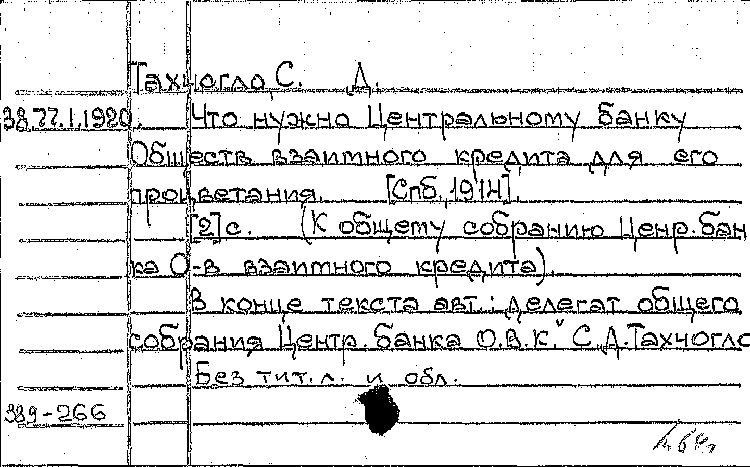 Тахчогло С. Д.
38.77.1.1980. Что нужно Центральному банку
Обществ взаимного кредита для его
процветания. [Спб, 1914].
[2] с. (К общему собранию Ценр. бан
ка О-в взаимного кредита).
В конце текста авт.: делегат общего
собрания Центр. банка О.В.К." С.Д. Тахчогло
Без тит. л. и обл.
389-266